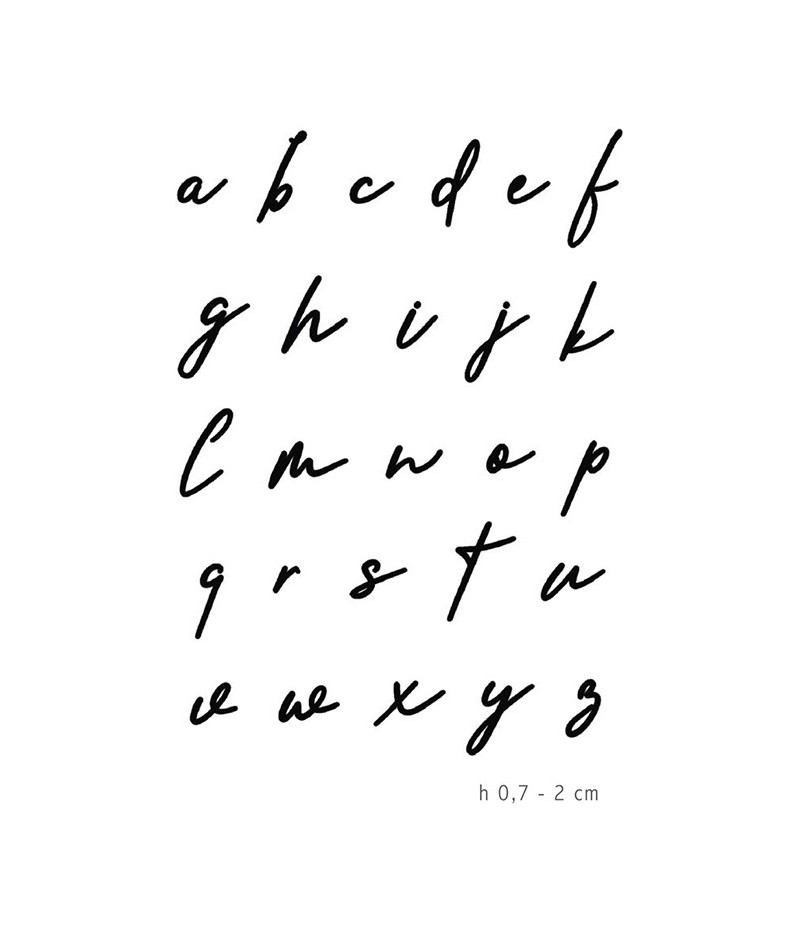 a b c d e f
g h i j k
l m n o p
q r s t u
v w x y z
h 0,7 - 2 cm